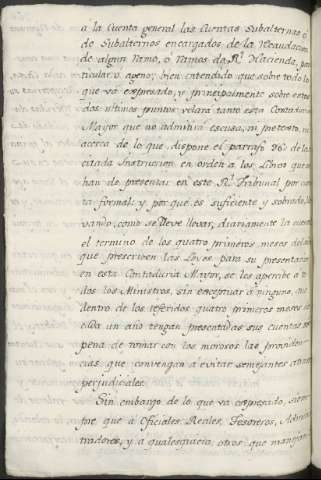 a la Cuenta general las Cuentas Subalternas ó
de Subalternos encargados de la Recaudacion
de algun Ramo, o Ramos de Rl. Hacienda, par
ticular o ageno; bien entendido que sobre todo lo
que va expresado, y principalmente sobre estos
dos ultimos puntos velará tanto esta Contaduria
Mayor que no admitirá escusa, ni pretexto
acerca de lo que dispone el parrafo de la
citada Instruccion en orden a los Libros que se
han de presentar en este Rl. Tribunal por cuen
ta formal: y por que es suficiente y sobrado, lle
vando, como se deve llevar, diariamente la cuenta
el termino de los quatro primeros meses del año
que prescriben las Leyes para su presentacion
en esta Contaduria Mayor, se les apercibe a to
dos los Ministros, sin exceptuar á ninguno, que
dentro de los referidos quatro primeros meses de
cada un año tengan presentadas sus cuentas so
pena de tomar con los morosos las providen
cias que convengan á evitar semejantes atrasos
perjudiciales.
Sin embargo de lo que va expresado, siem
pre que á Oficiales Reales, Tesoreros, Adminis
tradores, y a qualesquiera otros que manejan